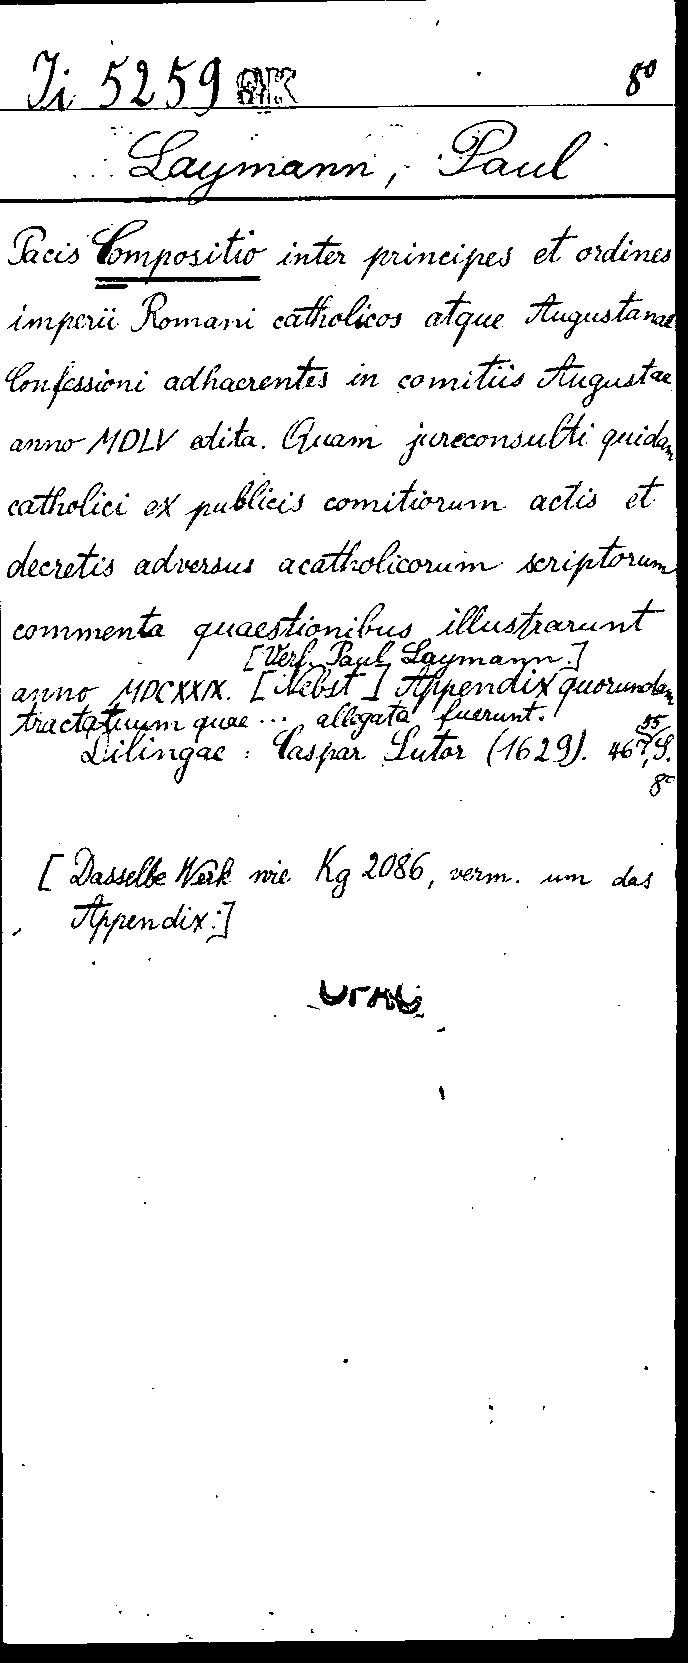 Ji 5259 8°
Laymann, Paul
Pacis Compositio inter principes et ordines
imperii Romani catholicos atque Augustanae
Confessioni adhaerentes in comitiis Augustae
anno MDLV edita. Quam jureconsulti quidam
catholici ex publicis comitiorum actis et
decretis adversus acatholicorum scriptorum
commenta quaestionibus illustrarunt
[Verf. Paul Laymann.]
anno MDCXXIX. [Nebst] Appendix quorundam
tractatuum quae... allegata fuerunt.
Dilingae: Caspar Sutor (1629). S.
8°
[Dasselbe Werk wie Kg 2086, verm. um das
Appendix.]